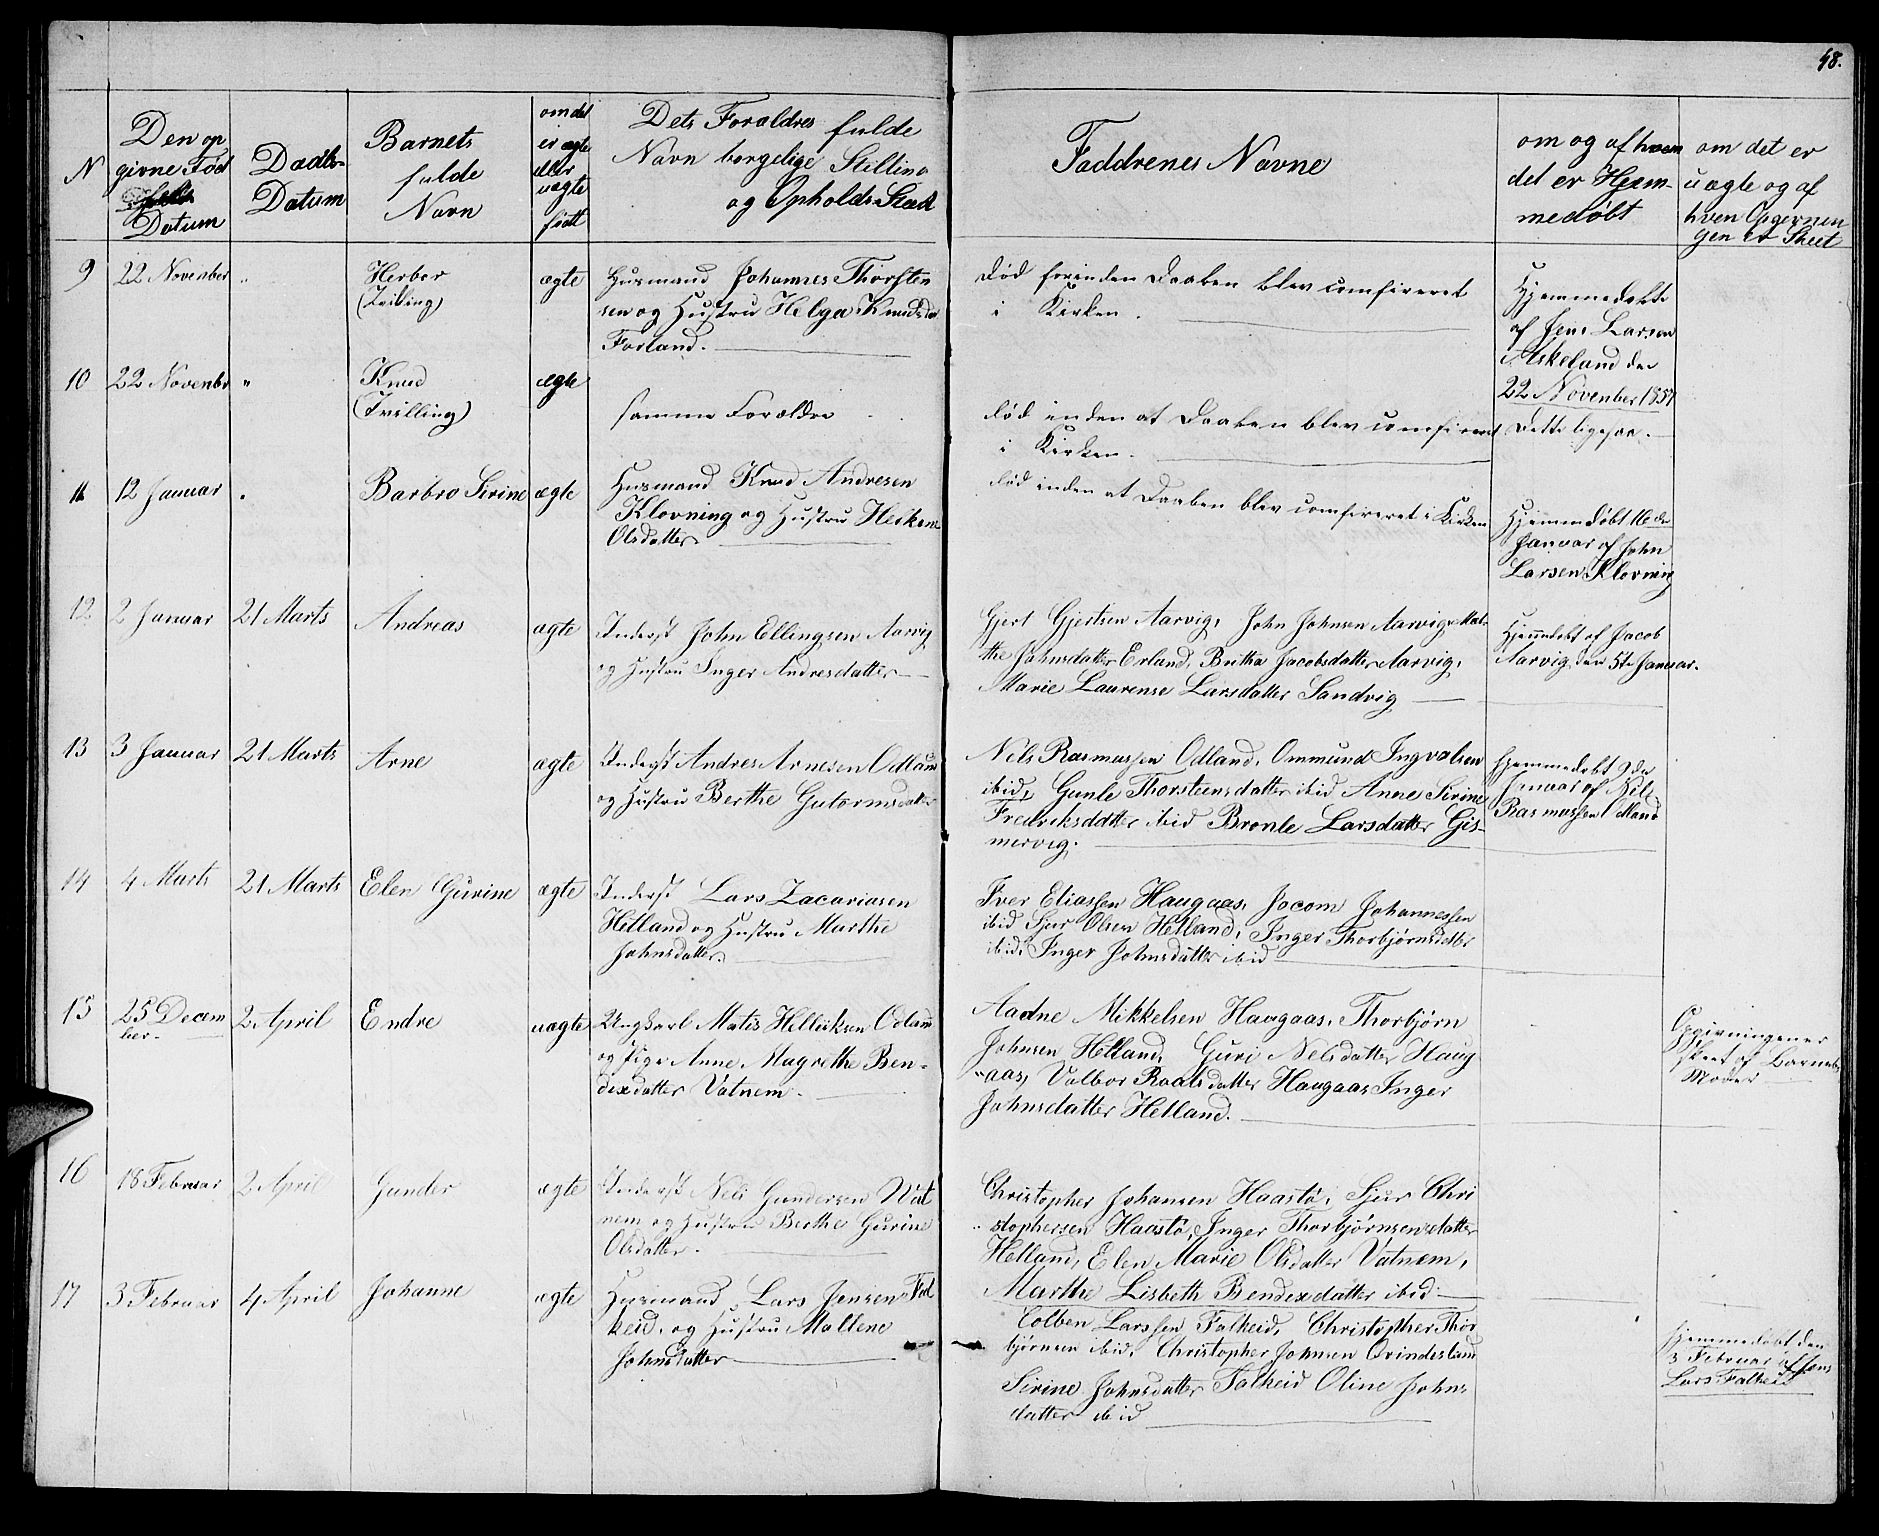 48.
N
Den op
givne Fød
Datum
Daabs-
Datum
Barnets
fulde
Navn
om det
er ægte
eller
uægte
født
Dets Foraldres fulde
Navn borgelige Stilling
og Opholds Sted
Faddrenes Navne
om og af hvem
det er Hjem-
medøbt
om det er
uægte og af
hven Opgivnin
gen er Skeet
9 22 November " Herbor ægte Husmand Johannes Thorsten
(Tvilling) sen og Hustru Helga Knudsda
Forland.
død forinden Daaben blev comfireret
i Kirken.
Hjemmedøbt
af Jens Larsen
Askeland den
22 November 1857
10 22 Novenbr " Knud ægte
(Tvilling) samme Forældre
død inden at Daaben blev comfireret
i Kirken.
Dette ligesaa.
11 12 Januar " Barbro Sirine ægte Husmand Knud Andresen
Klovning og Hustru
Olsdatter
død inden at Daaben blev comfireret i Kirken
Hjemmdøbt 16 de
Januar af John
Larsen Klovning
12 2 Januar 21 Marts Andreas ægte Inderst John Ellingsen Aarvig
og Hustru Inger Andresdatter
Gjert Gjertsen Aarvig, John Johnsen Aarvig, Mal-
the Johnsdatter Erland, Britha Jacobsdatter Aarvig,
Marie Laurense Larsdatter Sandvig
Hjemmedøbt af Jacob
Aarvig den 5te Januar.
13 3 Januar 21 Marts Arne ægte Inderst Andres Arnesen Odland
og Hustru Berthe Gutormsdatter
Nels Rasmussen Odland, Ommund Ingvalsen
ibid, Gunle Thorsteinsdatter ibid Anne Sirine
Fredriksdatter ibid Bronle Larsdatter Gis-
mervig.
Hjemmedøbt 9 de
Januar af Nils
Rasmussen Odland
14 4 Marts 21 Marts Elen Gurine ægte Inderst Lars Zacariasen
Helland og Hustru Marthe
Johnsdatter
Iver Eliassen Haugaas, Jocom Johannessen
ibid Sjur Olsen Helland, Inger Thorbjørnsdtter
ibid, Inger Johnsdatter ibid
15 25 Decem 2 April Endre uægte Ungkarl Matis Helliksen Odland
ber. og Pige Anne Magrethe Ben-
dixdatter Vatnem.
Aadne Mikkelsen Haugaas, Thorbjørn
Johnsen Helland, Guri Nelsdatter Haug
"aas, Valbor Roaldsdatter Haugaas Inger
Johnsdatter Helland.
Opgivningener
skeet af Barnets
Moder
16 18 Februar 2 April Gunder ægte Inderst Nels Gundersen Vat
nem og Hustru Berthe Gurine
Olsdatter.
Christopher Johansen Haastø, Sjur Chri
"stophersen Haastø, Inger Thorbjørnsensdatter
Helland, Elen Marie Olsdatter Vatnem,
Marthe Lisbeth Bendixdatter ibid.
17 3 Februar 4 April Johanne ægte Husmand Lars Jensen Fal
keid, og Hustru Mallene
Johnsdatter
Colben Larssen Falkeid, Christopher Thor
bjørnsen ibid, Christopher Johnsen Qvindesland
Sirine Johnsdatter Falkeid Oline Johns
datter ibid
Hjemmedøbt den
3 Februar af Jens
Lars Falkeid